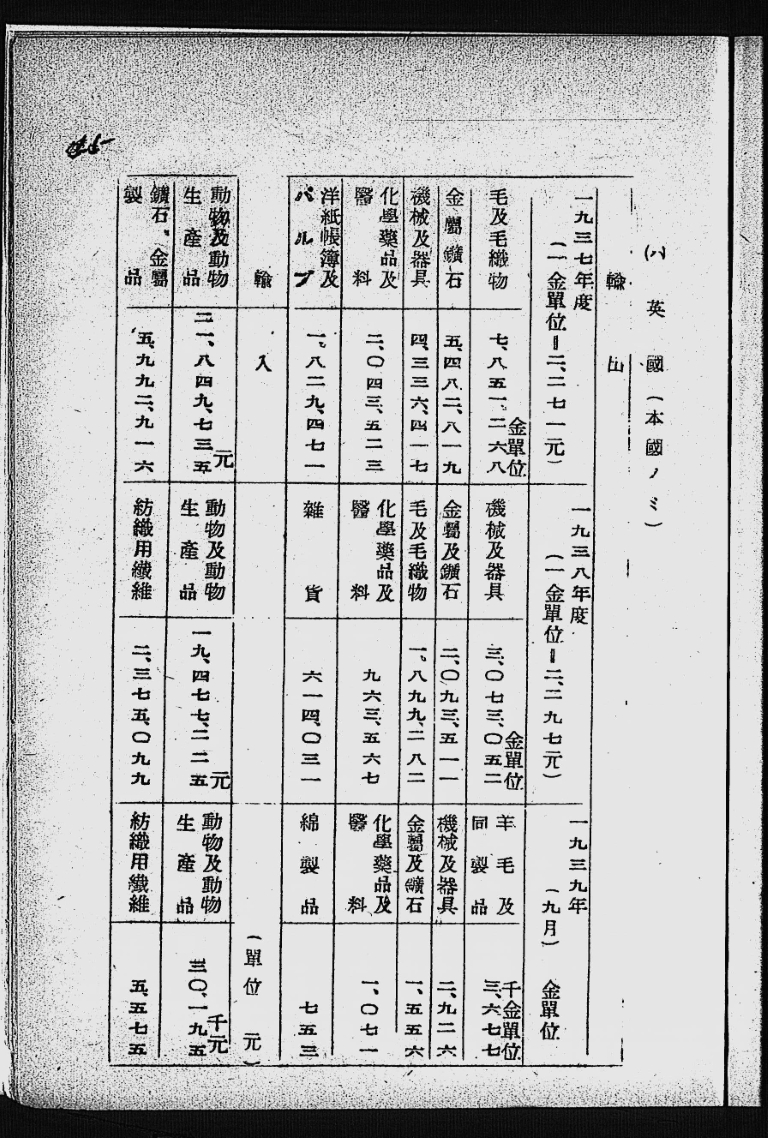 (ハ 英國(本國ノミ)
輸出
一九三七年度
(一金單位=二、二七一元)
一九三八年度
(一金單位=二、二九七元)
一九三九年
(九月)
金單位
毛及毛織物
金單位
七、八五一、二六八
機械及器具
金單位
三、〇七三、〇五二
羊毛及
同製品
千金單位
三、六七七
金屬鑛石
五、四八二、八一九
金屬及鑛石
二、〇九三、五一一
機械及器具
二、九二六
機械及器具
四、三三六、四一七
毛及毛織物
一、八九九、二八二
金屬及鑛石
一、五五六
化學藥品及
醫料
二、〇四三、五二三
化學藥品及
醫料
九六三、五六七
化學藥品及
醫料
一、〇七一
洋紙帳簿及
パルプ
一、八二九、四七一
雜貨
六一四、〇三一
綿製品
七五三
輸入
(單位 元)
動物及動物
生產品
元
二一、八四九、七三五
動物及動物
生產品
元
一九、四七七、二二五
動物及動物
生產品
千元
三〇、一九五
鑛石、金屬
製品
五、九九二、九一六
紡織用纖維
二、三七五、〇九九
紡織用纖維
五、五七五